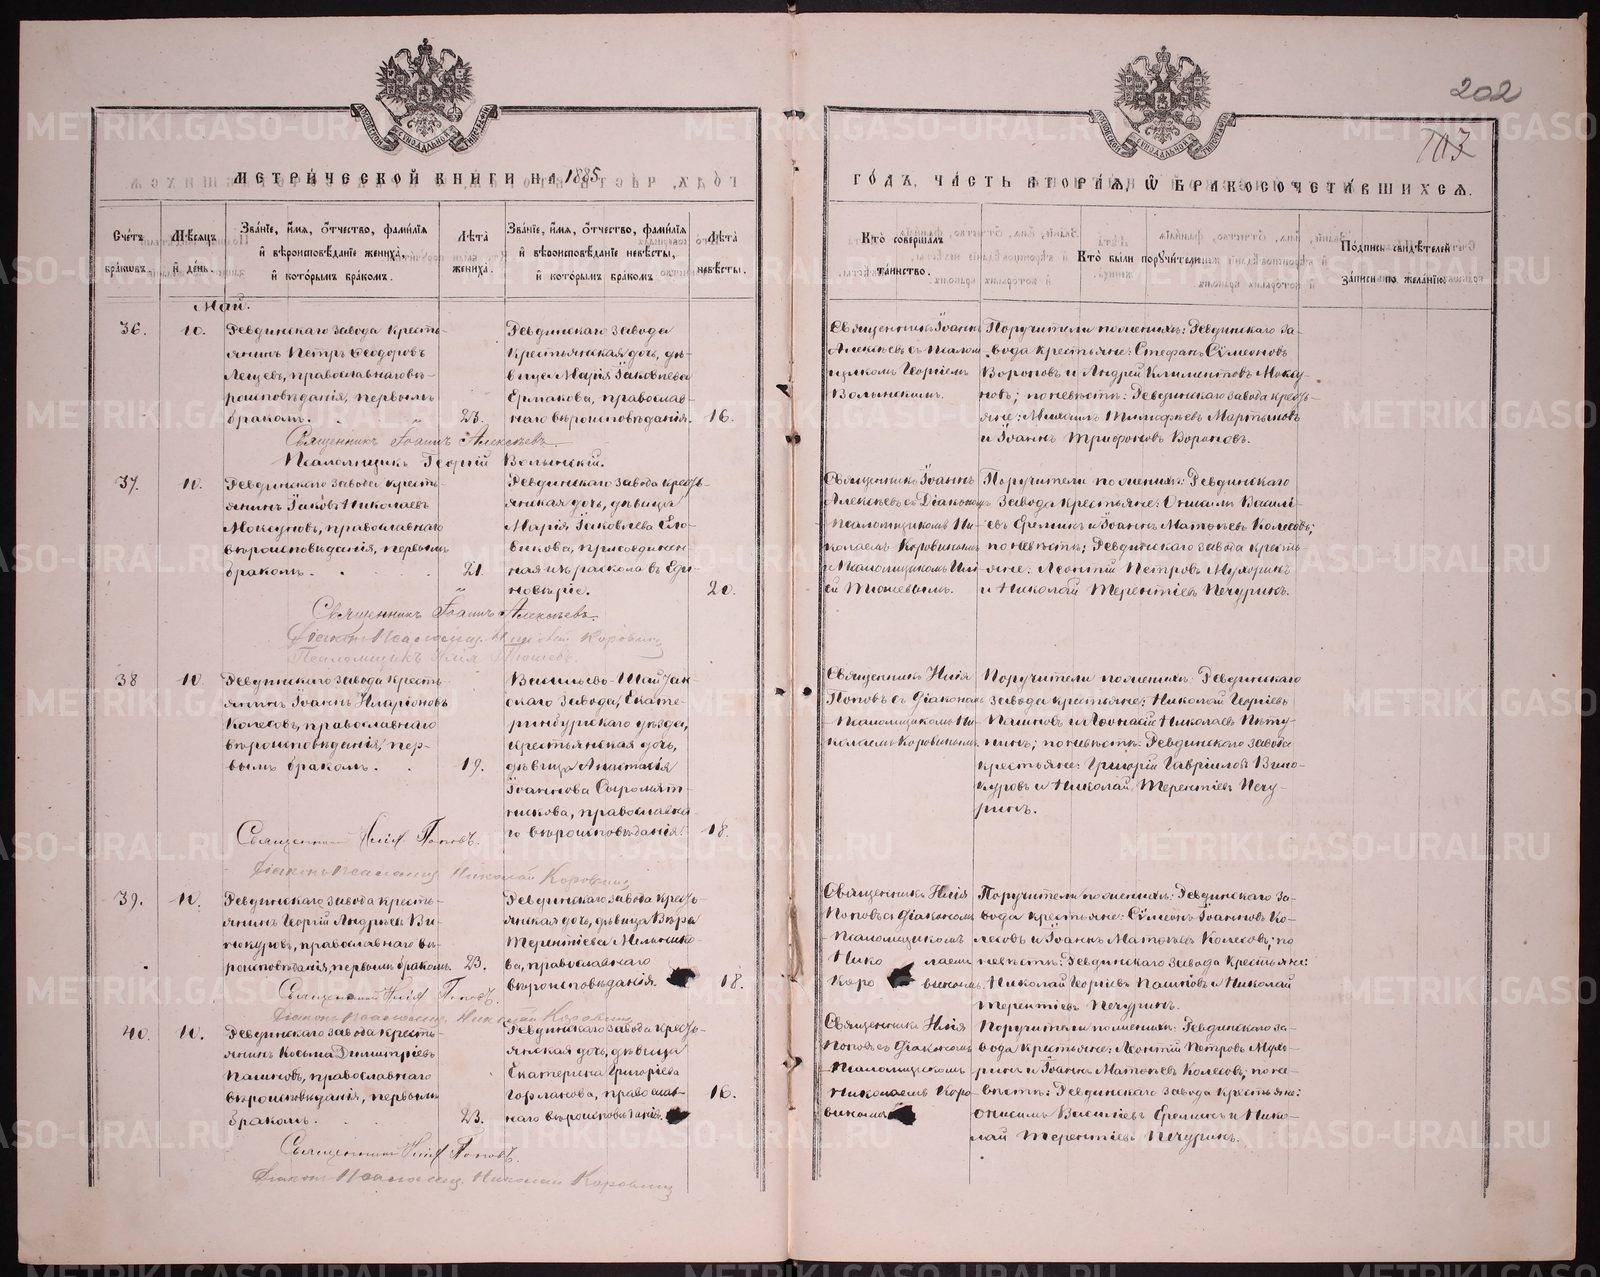 202
703
МЕТРИЧЕСКОЙ КНИГИ НА 1885
ГОДЪ, ЧАСТЬ ВТОРАЯ Ѡ БРАКОСОЧЕТАВШИХСЯ.
Счетъ браковъ.
Мѣсяцъ и день.
Званіе, имя, отчество, фамилія и вѣроисповѣданіе жениха, и которымъ бракомъ.
Лѣта жениха.
Званіе, имя, отчество, фамилія и вѣроисповѣданіе невѣсты, и которымъ бракомъ
Лѣта невѣсты.
Кто совершалъ таинство.
Кто были поручители
Подпись свидѣтелей записи по желанію
Май.
36.
10.
Ревдинскаго завода кресть-
янинъ Петръ Ѳеодоровъ
Лещевъ, православнаго вѣ-
роисповѣданія, первымъ
бракомъ.
23.
Ревдинскаго завода
крестьянская дочь, дѣ-
вица Марія Іаковлева
Ермакова, православ-
наго вѣроисповѣданія.
16.
Священникъ Іоаннъ
Алексѣевъ съ псалом-
щикомъ Георгіемъ
Волынскимъ.
Поручители по женихѣ: Ревдинскаго за-
вода крестьяне: Стефанъ Сѵмеоновъ
Вороновъ и Андрей Климентовъ Моксу-
новъ; по невѣстѣ: Ревдинскаго завода кресть-
яне: Михаилъ Тимофѣевъ Мартыновъ
и Іоаннъ Трифоновъ Вороновъ.
Священникъ Іоаннъ Алексѣевъ
Псаломщикъ Георгій Волынскій.
37.
10.
Ревдинскаго завода кресть-
янинъ Іаковъ Николаевъ
Моксуновъ, православнаго
вѣроисповѣданія, первымъ
бракомъ.
21.
Ревдинскаго завода кресть-
янская дочь, дѣвица
Марія Іаковлева
присоединен-
ная изъ раскола въ Еди-
новѣріе.
20.
Священникъ Іоаннъ
Алексѣевъ съ Діакономъ
Псаломщикомъ Ни-
колаемъ Коровинымъ
и Псаломщикомъ Илі-
ей Тюшевымъ.
Поручители по женихѣ: Ревдинскаго
завода крестьяне: Онисимъ Василі-
евъ Ереминъ и Іоаннъ Матѳѣевъ Колесовъ;
по невѣстѣ: Ревдинскаго завода кресть-
яне: Леонтій Петровъ Мухоринъ
и Николай Терентіевъ Печуринъ.
Священникъ Іоаннъ Алексѣевъ.
Діаконъ Псаломщ. Николай Коровинъ
Псаломщикъ Илія Тюшевъ.
38
10.
Ревдинскаго завода кресть-
янинъ Іоаннъ Иларіоновъ
Колесовъ, православнаго
вѣроисповѣданія, пер-
вымъ бракомъ.
19.
Васильево-Шайтан-
скаго завода, Екате-
ринбургскаго уѣзда,
крестьянская дочь,
дѣвица Анастасія
Іоаннова Сыромят-
никова, православна-
го вѣроисповѣданія.
18.
Священникъ Илія
Поповъ съ діакономъ
Псаломщикомъ Ни-
колаемъ Коровинымъ.
Поручители по женихѣ: Ревдинскаго
завода крестьяне: Николай Георгіевъ
Пашновъ и Аѳонасій Николаевъ Пѣту-
нинъ; по невѣстѣ: Ревдинскаго завода
крестьяне: Григорій Гавріиловъ Вино-
куровъ и Николай Терентіевъ Печу-
ринъ.
Священникъ Илія Поповъ.
Діаконъ Псаломщ. Николай Коровинъ
39.
10.
Ревдинскаго завода кресть-
янинъ Георгій Андреевъ Ви-
нокуровъ, православнаго вѣ-
роисповѣданія, первымъ бракомъ.
23.
Ревдинскаго завода кресть-
янская дочь, дѣвица Вѣра
Терентіева Мельнико-
ва, православнаго
вѣроисповѣданія.
18.
Священникъ Илія
Поповъ съ діакономъ
Псаломщикомъ
Николаемъ
Коровинымъ.
Поручители по женихѣ: Ревдинскаго за-
вода крестьяне: Сѵмеонъ Іоанновъ Ко-
лесовъ и Іоаннъ Матѳѣевъ Колесовъ; по
невѣстѣ: Ревдинскаго завода крестьяне:
Николай Георгіевъ Пашновъ и Николай
Терентіевъ Печуринъ.
Священникъ Илія Поповъ.
Діаконъ Псаломщ. Николай Коровинъ
40.
10.
Ревдинскаго завода кресть-
янинъ Косьма Димитріевъ
Пашновъ, православнаго
вѣроисповѣданія, первымъ
бракомъ.
23.
Ревдинскаго завода кресть-
янская дочь, дѣвица
Екатерина Григоріева
Горланова, православ-
наго вѣроисповѣданія.
16.
Священникъ Илія
Поповъ съ діакономъ
Псаломщикомъ
Николаемъ Коро-
винымъ
Поручители по женихѣ: Ревдинскаго за-
вода крестьяне: Леонтій Петровъ Мухо-
ринъ и Іоаннъ Матѳѣевъ Колесовъ; по не-
вѣстѣ: Ревдинскаго завода крестьяне:
Онисимъ Васильевъ Ереминъ и Нико-
лай Терентіевъ Печуринъ.
Священникъ Илія Поповъ.
Діаконъ Псаломщ. Николай Коровинъ
METRIKI.GASO-URAL.RU